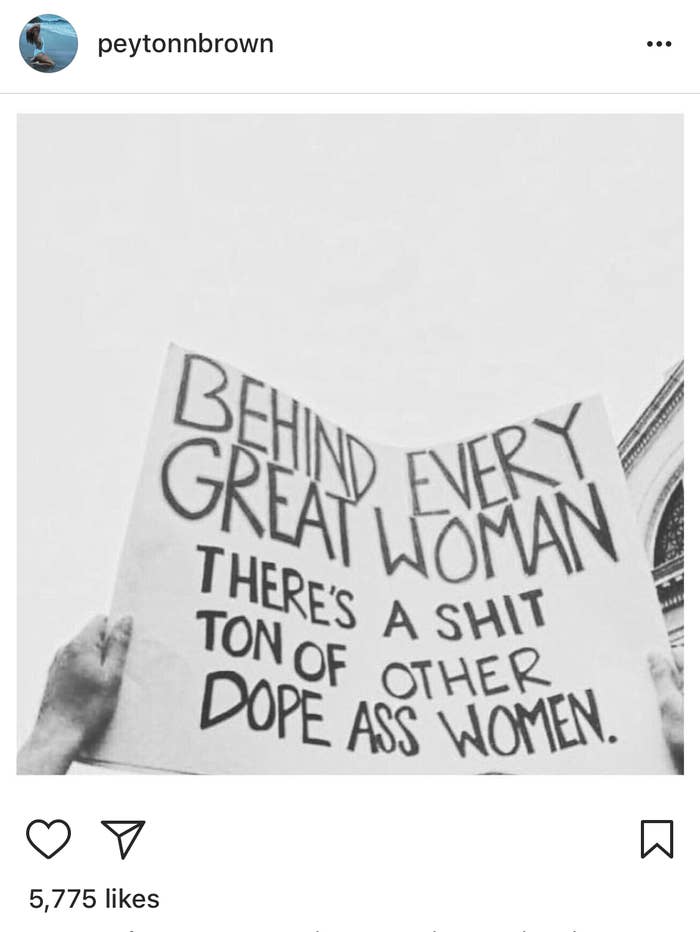 peytonnbrown
BEHIND EVERY
GREAT WOMAN
THERE'S A SHIT
TON OF OTHER
DOPE ASS WOMEN.
5,775 likes